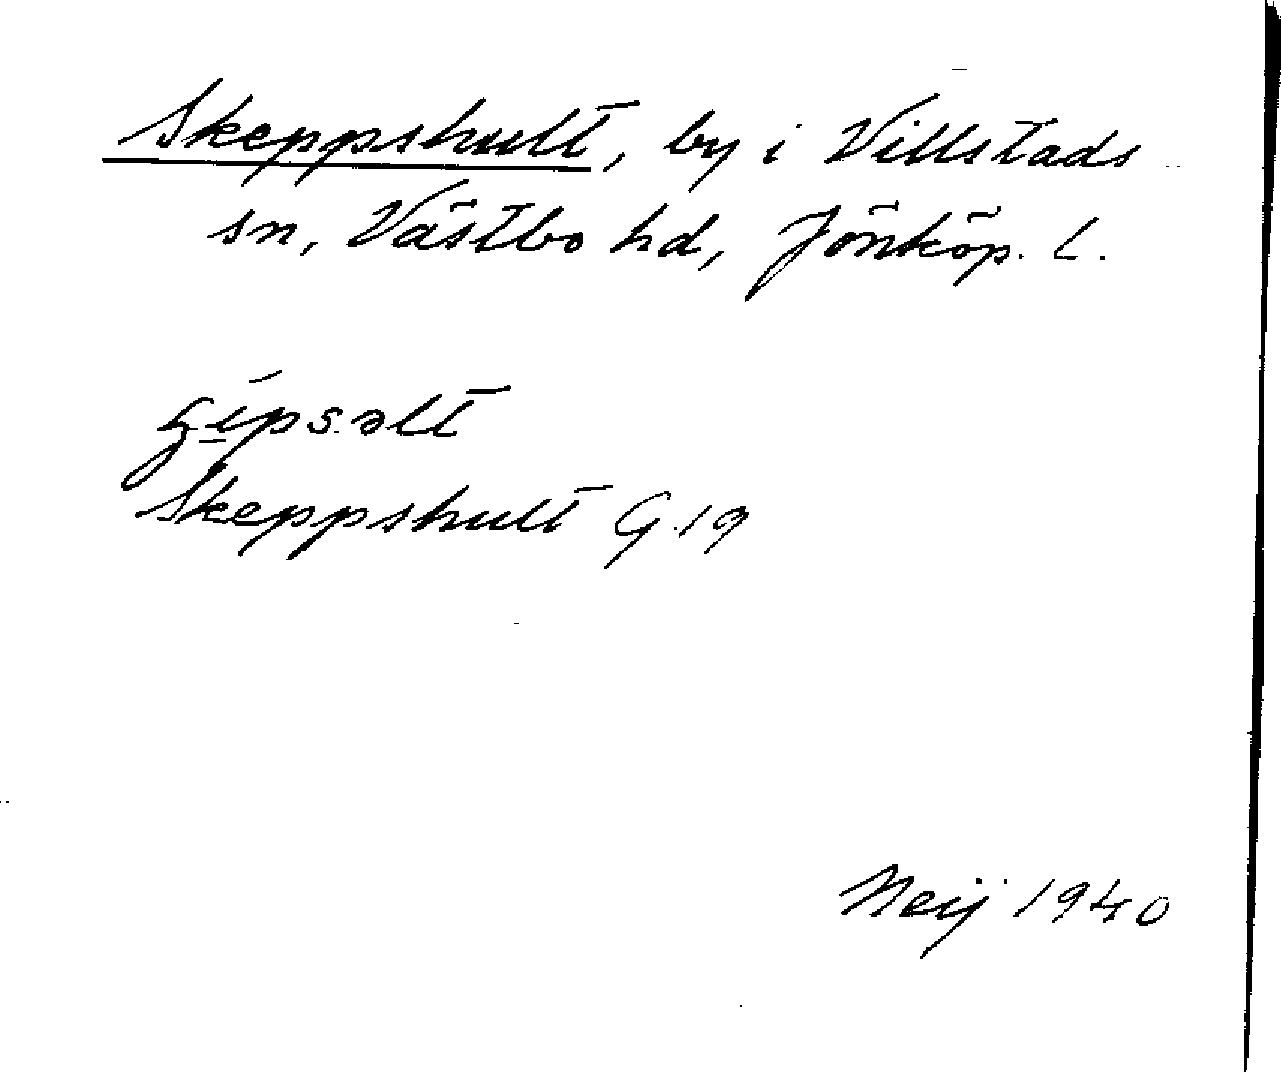 Skeppshult, by i Villstads
sn, Västbo hd, Jönköp. l.
Skeppshult G 19
Neij 1940